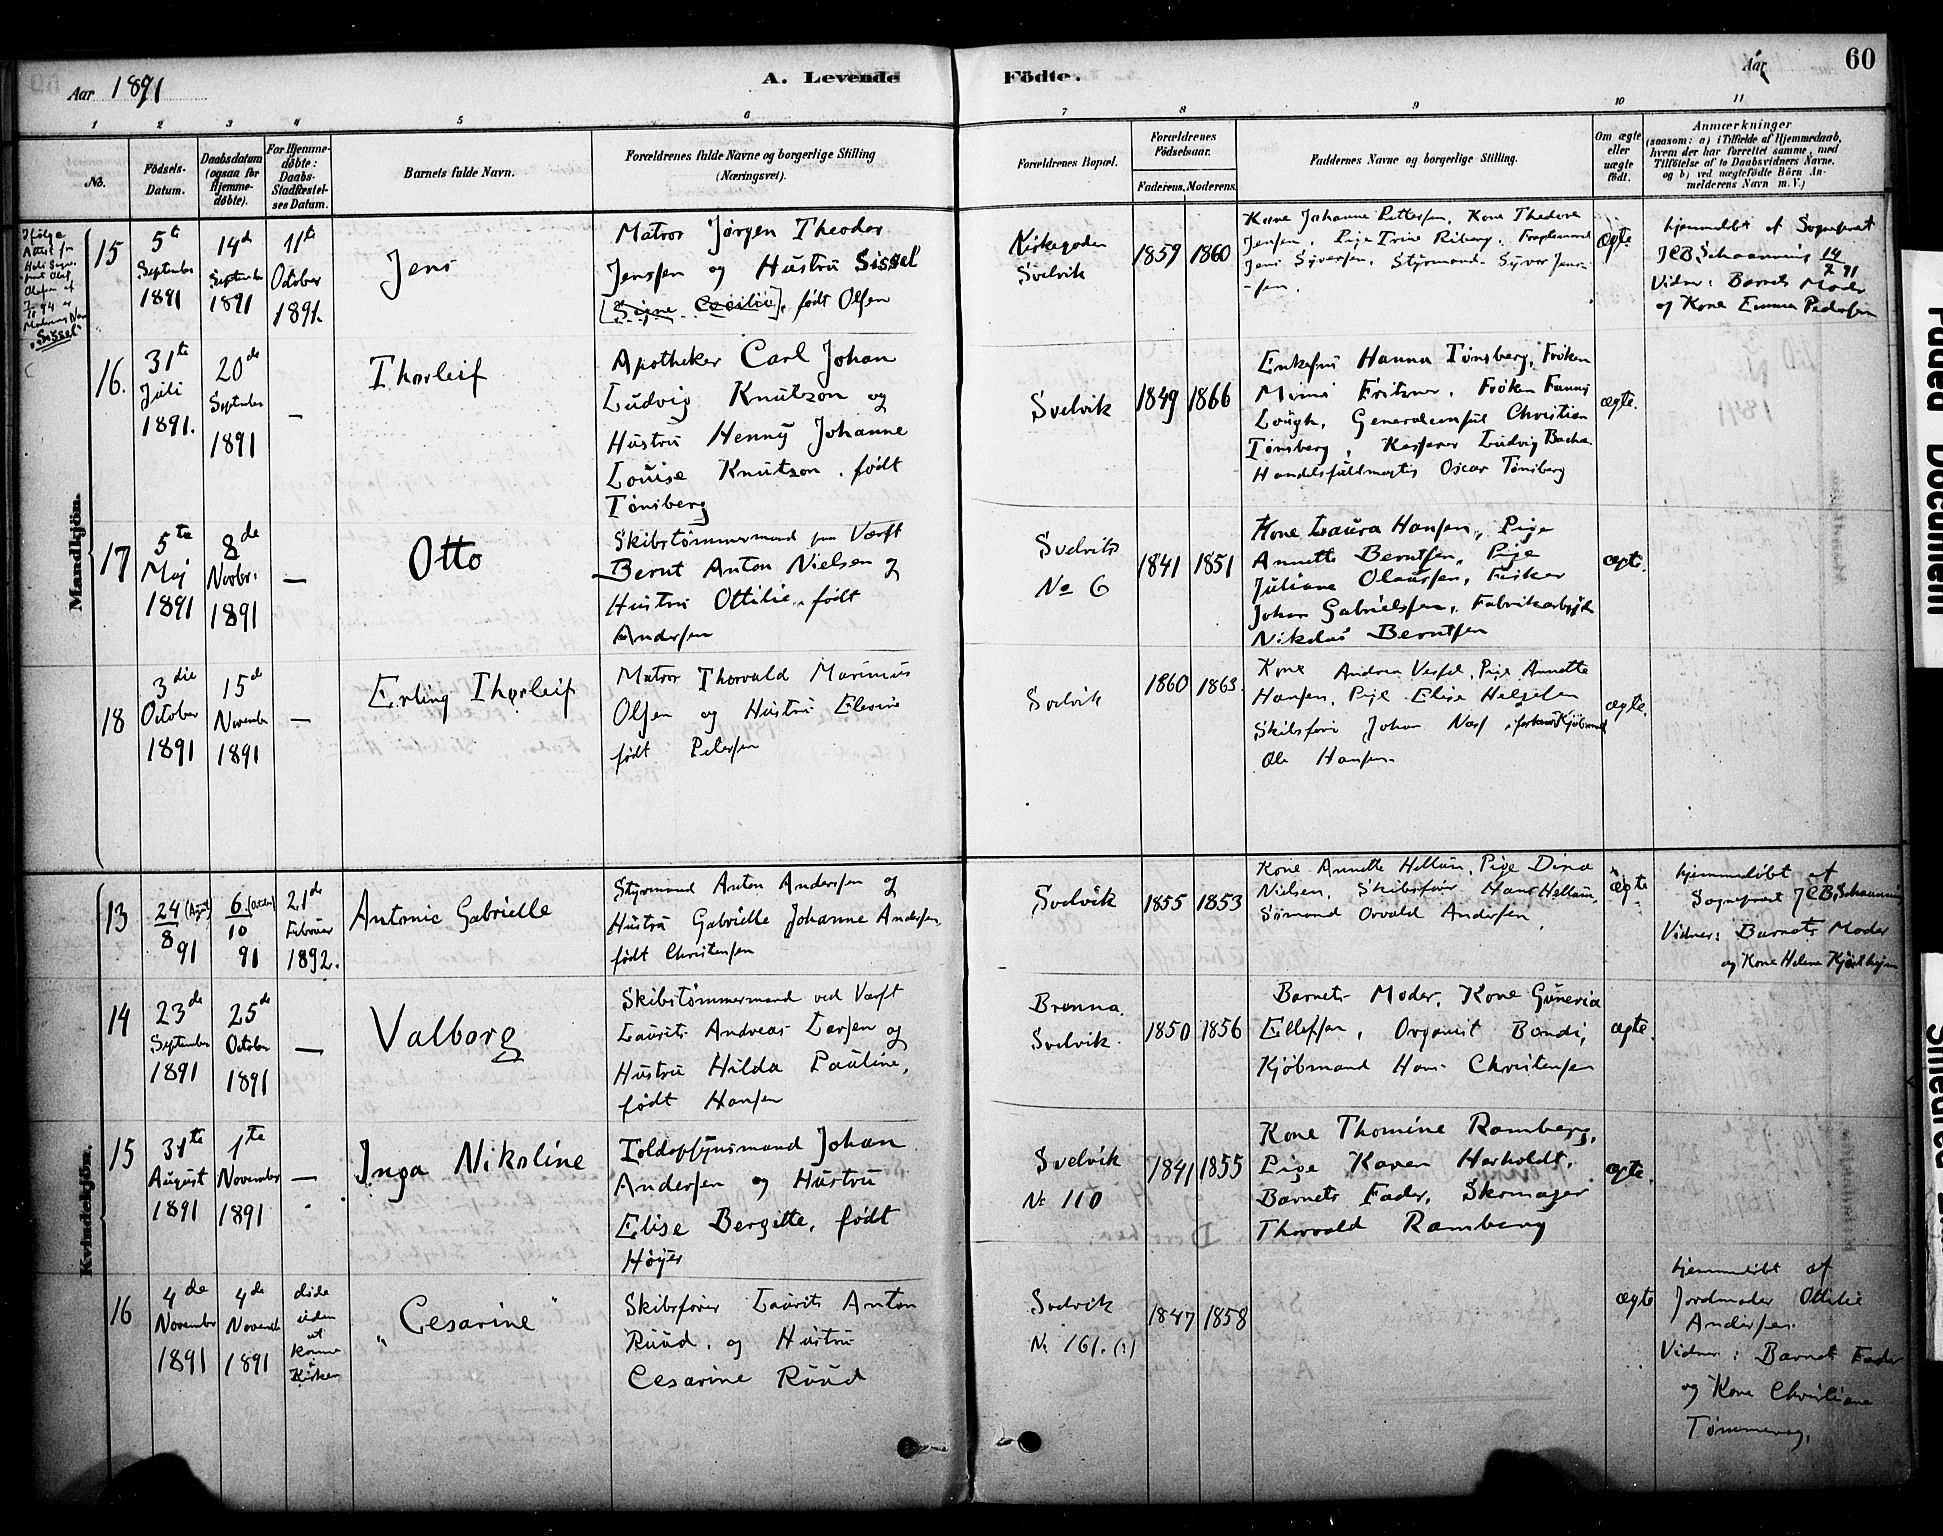 Aar 1891
A. Levende
Födte.
Aar
60
1
2
3
4
5
6
7
8
9
10
11
No.
Födsels-
Datum.
Daabsdatum
(ogsaa for
Hjemme-
döbte).
For Hjemme-
döbte:
Daabs-
Stadfæstel-
ses Datum.
Barnets fulde Navn.
Forældrenes fulde Navne og borgerlige Stilling
(Næringsvei).
Forældrenes Bopæl.
Forældrenes
Födselsaar.
Faderens.
Moderens.
Faddernes Navne og borgerlige Stilling.
Om ægte
eller
uægte
födt.
Anmærkninger
(saasom: a) i Tilfælde af Hjemmedaab,
hvem der har forrettet samme, med
Tilföielse af to Daabsvidners Navne,
og b) ved uægtefödte Börn An-
melderens Navn m.V.)
Mandkjön.
Ifølge
Attest fra
Olaf
Olsen af
Moderens Navn
"Sissel"
15
5te
September
1891
14de
September
1891
11te
October
1891.
Jens
Matros Jørgen Theodor
Jenssen og Hustru Sissel
[Signe Cecilie], født Olsen
Kirkegaden
Svelvik
1859
1860
Kone Johanne Pettersen, Kone Thedora
Jensen, Pige Trine Riberg, Fragtemand
Jens Syversen, Styrmand Syver Jens-
-sen.
ægte
hjemmedøbt af Sognepræst
J.C.B. Schaanning 14/9 91
Vidner: Barnets Moder
og Kone Emma Pedersen
16.
31te
Juli
1891.
20de
September
1891
—
Thorleif
Apotheker Carl Johan
Ludvig Knutzon og
Hustru Henny Johanne
Louise Knutzon, født
Tønsberg
Svelvik
1849
1866
Enkefru Hanna Tønsberg, Frøken
Mimi Fritzner, Frøken Fanny
Lough, Generalconsul Christian
Tønsberg, Kasserer Ludvig Bache
Handelsfuldmægtig Oscar Tønsberg
ægte.
17
5te
Maj
1891
8de
Novbr.
1891
—
Otto
Skibstømmermand paa Værft
Bernt Anton Nielsen og
Hustru Ottilie, født
Andersen
Svelvik
No 6
1841
1851
Kone Laura Hansen, Pige
Annette Berntsen, Pige
Juliane Olaussen, Fisker
Johan Gabrielsen, Fabrikarbejder
Nikolai Berntsen
ægte.
18
3die
October
1891
15de
November
1891
—
Erling Thorleif
Matros Thorvald Marinius
Olsen og Hustru Elevine
født Petersen
Svelvik
1860
1863.
Kone Andrea Pige Annette
Hansen, Pige Elise Helgesen
Skibsfører Johan Næss, Kjøbmand
Ole Hansen.
ægte.
Kvindekjön.
13
24 (August)
8 91
6 (October)
10 91
21de
Februar
1892.
Antonie Gabrielle
Styrmand Anton Andersen og
Hustru Gabrielle Johanne Andersen,
født Christensen
Svelvik
1855
1853
Kone Annette Hellum, Pige Dina
Nielsen, Skibsfører Hans Hellum,
Sømand Osvald Andersen
ægte
hjemmedøbt af
Sognepræst J.C.B. Schaanning
Vidner: Barnets Moder
og Kone Helene
14
23de
September
1891
25de
October
1891
—
Valborg
Skibstømmermand ved Værft
Laurits Andreas Larsen og
Hustru Hilda Pauline,
født Hansen
Brenna.
Svelvik.
1850
1856
Barnets Moder, Kone Guneria
Ellefsen, Organist Bondi,
Kjøbmand Hans Christensen
ægte.
15
31te
August
1891
1te
November
1891
—
Inga Nikoline
Toldopsynsmand Johan
Andersen og Hustru
Elise Bergitte, født
Høyer
Svelvik
No 110
1841
1855
Kone Thomine Ramberg,
Pige Karen Harholdt,
Barnets Fader, Skomager
Thorvald Ramberg
ægte.
16
4de
November
1891
4de
November
1891
døde
uden
at
komme
i
Kirken
"Cesarine"
Skibsfører Laurits Anton
Ruud, og Hustru
Cesarine Ruud
Svelvik
No 161. (?)
1847
1858
ægte
hjemmedøbt af
Jordmoder Ottilie
Andersen.
Vidner: Barnets Fader
og Kone Christiane